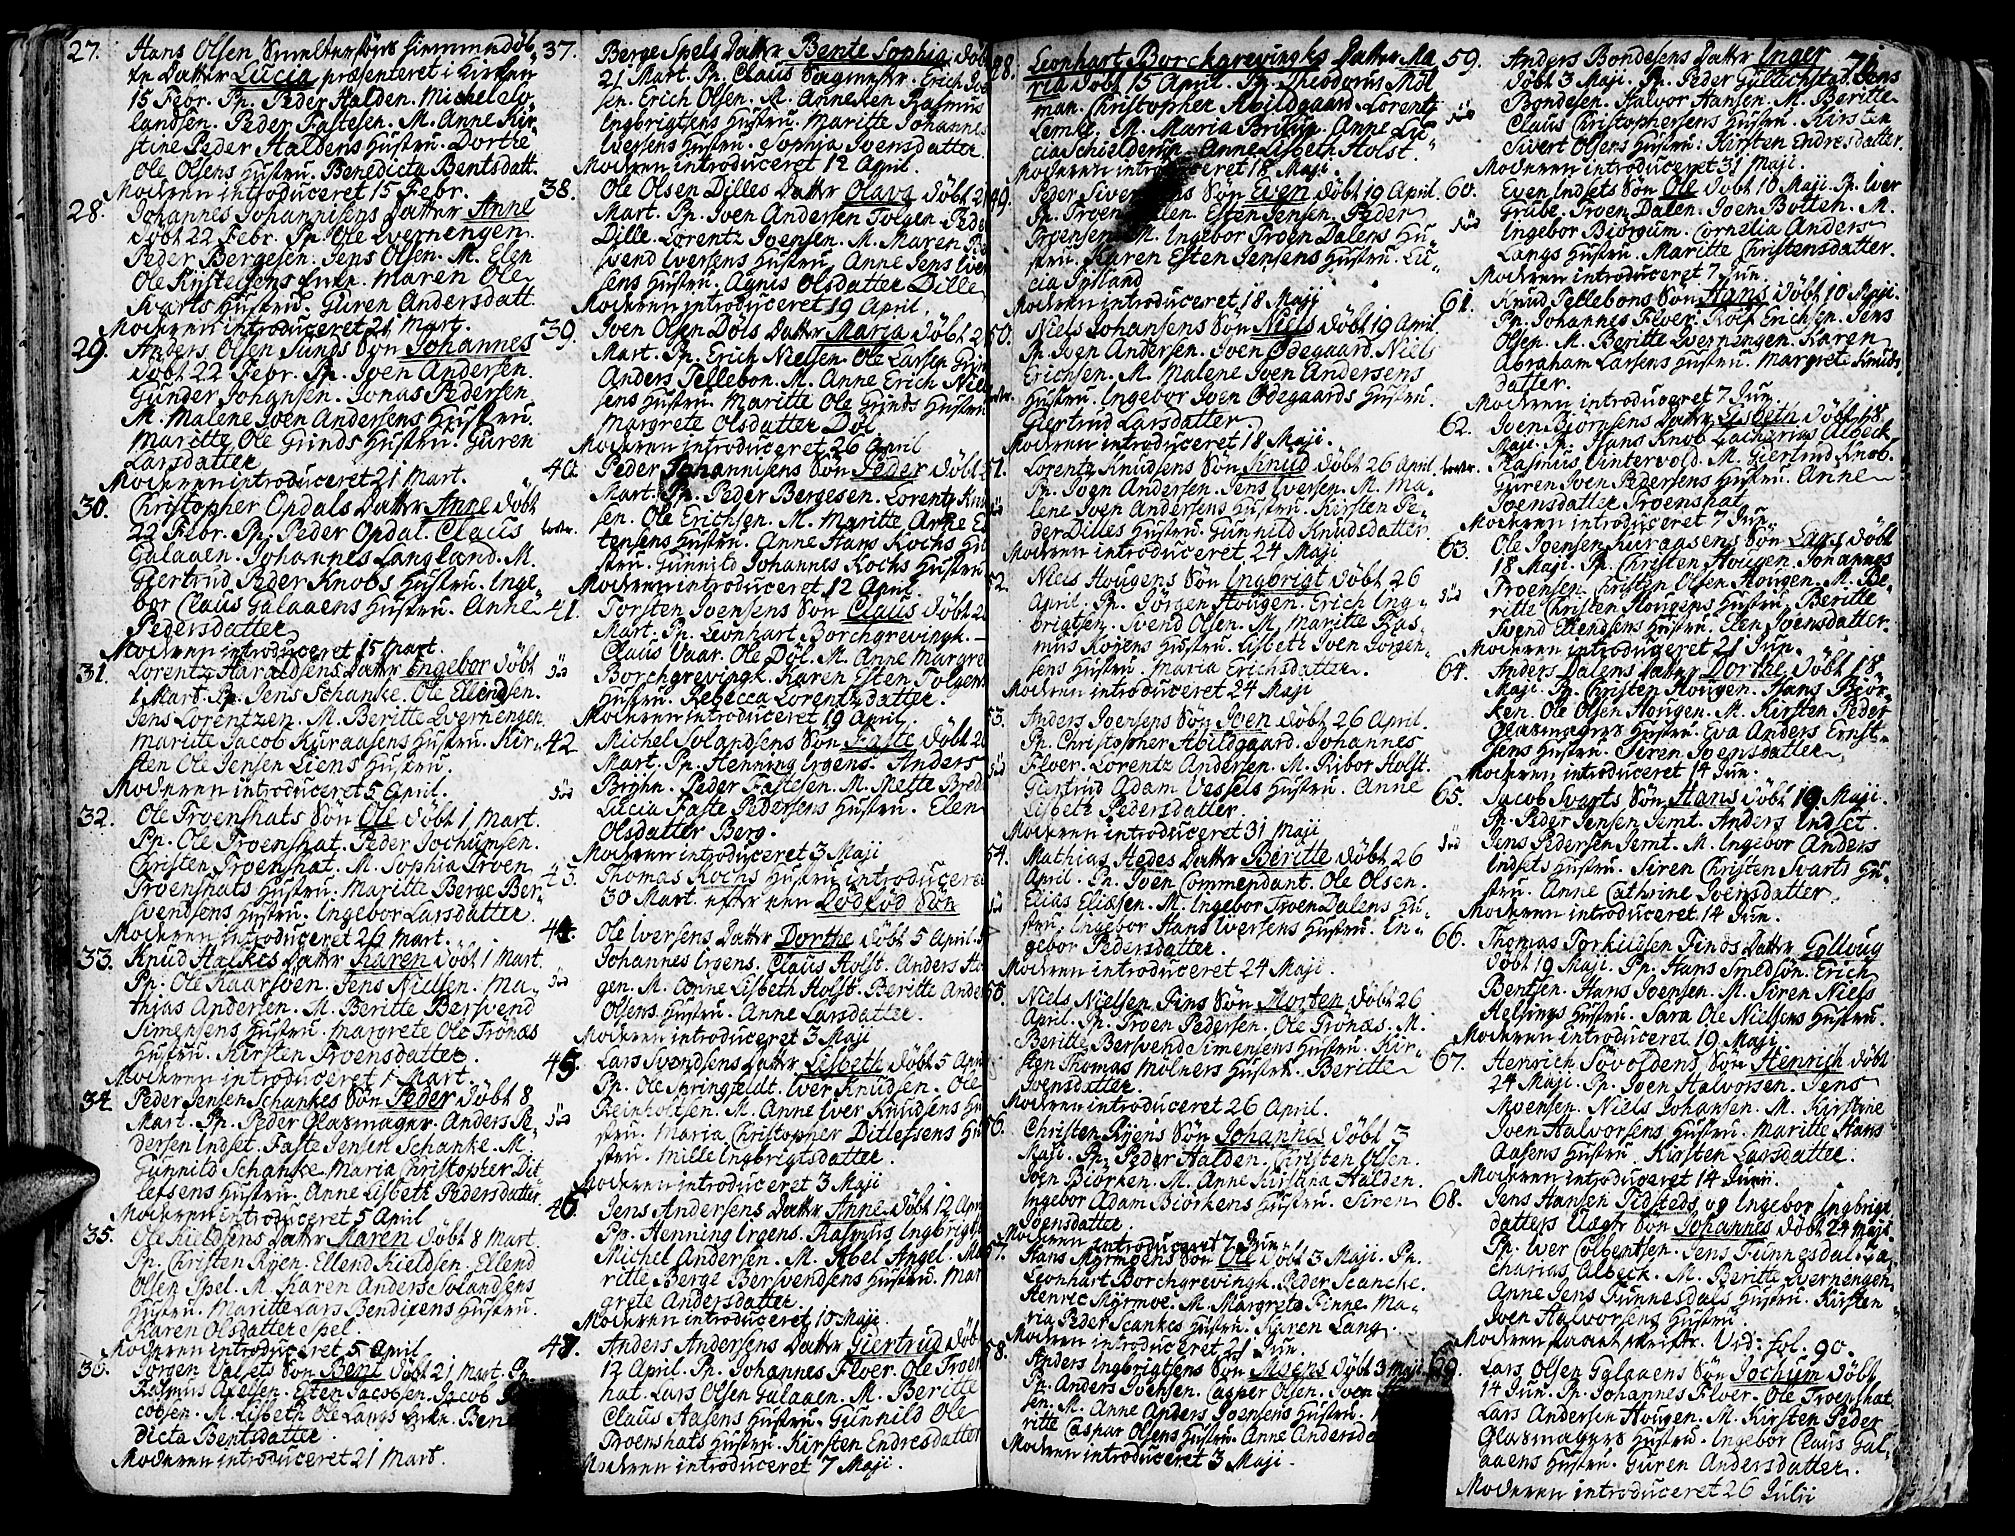 27. Hans Olsen Smeltersøns hiemmedøb-
te Datter Lucia præsenteret i Kirken
15 Febr. Pp. Peder Halden. Michel So-
landsen. Peder Fastesen. M. Anne Kir-
stine Peder Haldens Hustru. Dorthe
Ole Olsens Hustru. Benedicta Bentsdatt.
Moderen introduceret 15 Febr.
28. Johannes Johannisens Datter Anne
døbt 22 Febr. Pp. Ole Qvernengen.
Peder Bergesen. Jens Olsen. M. Elen
Ole Kristensens Enke. Maren Ole
Svarts Hustru. Guren Andersdatt.
Moderen introduceret 21 Mart.
29. Anders Olsen Sunds Søn Johannes
døbt 22 Febr. Pp. Joen Andersen
Gunder Johansen. Jonas Pedersen
M. Malene Joen Andersens Hustru.
Maritte Ole Grinds Hustru. Guren
Larsdatter
Moderen introduceret 21 Mart.
30. Christopher Opdals Datter Anne døbt
22 Febr. Pp. Peder Opdal. Claus
Galaaen. Johannes Langland. M.
Giertrud Peder Knobs Hustru. Inge-
bor Claus Galaaens Hustru. Anne
Pedersdatter
Moderen introduceret 15 Mart.
31. Lorentz Haraldsens Datter Ingebor døbt
1 Mart. Pp. Jens Schanke. Ole Ellendsen.
Jens Lorentzen. M. Beritte Qvernengen
Maritte Jacob Kuraasens Hustru. Kir-
sten Ole Jensen Liens Hustru.
Moderen introduceret 5 April.
32. Ole Troenshats Søn Ole døbt 1 Mart.
Pp. Ole Troenshat. Peder Jochumsen.
Christen Troenshat. M. Sophia Troen
Troenshats Hustru. Maritte Berge Ber-
svendsens Hustru. Ingebor Larsdatter.
Moderen introduceret 26 Mart.
33. Knud Halkes Datter Karen døbt 1 Mart.
Pp. Ole Kaarsven. Jens Nielsen. Ma-
thias Andersen. M. Beritte Bersvend
Simensens Hustru. Margrete Ole Trønæs
Hustru. Kirsten Troensdatter.
Moderen introduceret 1 Mart.
34. Peder Jensen Schankes Søn Peder døbt 8
Mart. Pp. Peder Glasmager. Anders Pe-
dersen Indset. Faste Jensen Schanke. M.
Gunnild Schanke. Maria Christopher Dit-
lefsens Hustru. Anne Lisbeth Pedersdatter.
Moderen introduceret 5 April
35. Ole Kieldsens Datter Maren døbt 8 Mart.
Pp. Christen Ryen. Ellend Kieldsen. Ellend
Olsen Spel. M. Karen Anders Solandsens
Hustru. Maritte Lars Bendixens Hustru.
Karen Olsdatter Spel.
Moderen introduceret 5 April
36. Jørgen Valsets Søn Bent døbt 21 Mart. Pp.
Rasmus Axelsen. Esten Jacobsen. Jacob
cobsen. M. Lisbeth Ole Langs Enke. Bene
dicta Bentsdatter.
Moderen introduceret 21 Mart.
37. Berge Spels Datter Bente Sophia døbt
21 Mart. Pp. Claus Sagmester. Erich
sen. Erich Olsen. M. Anneken Rasmus
Ingbrigtsens Hustru. Maritte Johannes
Iversens Hustru. Sophia Joensdatter.
Moderen introduceret 12 April.
38. Ole Olsen Dilles Datter Olava døbt 2
Mart. Pp. Joen Andersen Tolgen. Peder
Dille. Lorentz Joensen. M. Maren
Svend Iversens Hustru. Anne Jens Iver
sens Hustru. Agnis Olsdatter Dille
Moderen introduceret 19 April.
39. Joen Olsen Døls Datter Maria døbt 2
Mart. Pp. Erich Nielsen. Ole Larsen Grind
Anders Tellebon. M. Anne Erich Niel
sens Hustru. Maritte Ole Grinds Hustru
Margrete Olsdatter Døl
Moderen introduceret 26 April
40. Peder Johannisens Søn Peder døbt
Mart. Pp. Peder Bergesen. Lorentz Knud
sen. Ole Erichsen. M. Maritte Arne E
stensens Hustru. Anne Hans Kochs Hu
stru. Gunnild Johannes Kochs Hustru
Moderen introduceret 12 April.
41. Torsten Joensens Søn Claus døbt 2
Mart. Pp. Leonhart Borchgrevingk.
Claus Vaar. Ole Døl. M. Anne Margrete
død Borchgrevingk. Karen Esten Tolgens
Hustru. Rebecca Lorentzdatter.
Moderen introduceret 19 April.
42 Michel Solandsens Søn Faste døbt 2
Mart. Pp. Henning Irgens. Anders
død Bryhn. Peder Fastesen. M. Mette Bred
Lucia Faste Pedersens Hustru. Elen
Olsdatter Berg.
Moderen introduceret 3 Maji
43. Thomas Kochs Hustru introduceret
30 Mart. efter een Dødfød Søn
44. Ole Iversens Datter Dorthe døbt 5 April.
Johannes Irgens. Claus Holst. Anders Hou
død gen. M. Anne Lisbeth Holst. Beritte Anders
Olsens Hustru. Anne Larsdatter.
Moderen introduceret 3 Maji
45. Lars Svendsens Datter Lisbeth døbt 5 April
Pp. Ole Springfeldt. Iver Knudsen. Ole
død Reinholtsen. M. Anne Iver Knudsens Hu
stru. Maria Christopher Ditlefsens Hu
stru. Mille Ingbrigtsdatter.
Moderen introduceret 3 Maji
46. Jens Andersens Datter Anne døbt 12 April
Pp. Henning Irgens. Rasmus Ingbrigtsen
Michel Andersen. M. Abel Angel. Ma
ritte Berge Bersvendsens Hustru. Mar
grete Andersdatter.
Moderen introduceret 10 Maji.
47. Anders Andersens Datter Giertrud døbt
12 April. Pp. Johannes Floer. Ole Troens
hat. Lars Olsen Galaaen. M. Beritte
Claus Aasens Hustru. Gunnild Ole
Troenshats Hustru. Kirsten Endresdatter
Moderen introduceret 7 Maji.
48. Leonhart Borchgrevingks Datter Ma
ria døbt 15 April. Pp. Theodorus Mol
man. Christopher Abildgaard. Lorentz
Lemke. M. Maria Bruun. Anne Lu-
cia Schielderup. Anne Lisbeth Holst.
Moderen introduceret 18 Maji.
49. Peder Siver Søn Even døbt 19 April.
Pp. Troen Dalen. Esten Jensen. Peder
Troensen. M. Ingebor Troen Dalens Hu-
stru. Karen Esten Jensens Hustru. Lu-
cia
Moderen introduceret 18 Maji
50. Niels Johansens Søn Niels døbt 19 April.
Pp. Joen Andersen. Joen Ødegaard. Niels
Erichsen. M. Malene Joen Andersens
Hustru. Ingebor Joen Ødegaards Hustru.
Giertrud Larsdatter.
Moderen introduceret 18 Maji.
51. Lorentz Knudsens Søn Knud døbt 26 April.
Pp. Joen Andersen. Jens Iversen. M. Ma-
lene Joen Andersens Hustru. Kirsten Pe-
der Dilles Hustru. Gunnild Knudsdatter.
Moderen introduceret 24 Maji
52. Niels Hougens Søn Ingbrigt døbt 26
April. Pp. Jørgen Hougen. Erich Ing-
brigtsen. Svend Olsen. M. Maritte Ras-
mus Korens Hustru. Lisbeth Joen Joen-
sens Hustru. Maria Erichsdatter.
Moderen introduceret 24 Maji
53. Anders Joensens Søn Joen døbt 26 April.
Pp. Christopher Abildgaard. Johannes
Floer. Lorentz Andersen. M. Ribor Holst.
Giertrud Adam Vessels Hustru. Anne
Lisbeth Pedersdatter.
Moderen introduceret 31 Maji
54. Mathias Hedes Datter Beritte døbt 26
April. Pp. Joen Commendant. Ole Olsen.
Elias Eliæsen. M. Ingebor Troen Dalens Hu-
stru. Ingebor Hans Iversens Hustru. In-
gebor Pedersdatter.
Moderen introduceret 24 Maji.
55. Niels Nielsen Fins Søn Morten døbt 26
April. Pp. Troen Pedersen. Ole Trønæs. M.
Beritte Bersvend Simensens Hustru. Kir-
sten Thomas Mølners Hustru. Beritte
Joensdatter.
Moderen introduceret 26 April.
56. Christen Ryens Søn Johannes døbt 3
Maji. Pp. Peder Halden. Christen Olsen.
Joen Biørken. M. Anne Kirstina Halden.
Ingebor Adam Biørkens Hustru. Siren
Joensdatter.
Moderen introduceret 7 Jun.
57. Hans Myrmoens Søn Ole døbt 3 Maji. Pp.
Leonhart Borchgrevingk. Peder Scancke.
Henric Myrmoe. M. Margrete Finne. Ma-
ria Peder Scankes Hustru. Karen Lang.
Moderen introduceret 21 Jun.
58. Anders Ingbrigtsens Søn Moens døbt 3 Maji
Pp. Anders Joensen. Casper Olsen. Joen
sen. M. Anne Anders Joensens Hustru.
ritte Caspar Olsens Hustru. Anne Andersda
Moderen introduceret 3 Maji.
71
59. Anders Bondesens Datter Inger
døbt 3 Maji. Pp. Peder Gullichstad. Jens
død Bondesen. Halvor Hansen. M. Beritte
Claus Christophersens Hustru. Kirsten
Sivert Olsens Hustru. Kirsten Endresdatter.
Moderen introduceret 31 Maji.
60. Even Indsets Søn Ole døbt 10 Maji. Pp. Iver
Grube. Troen Dalen. Joen Botten. M.
død Ingebor Biorgum. Cornelia Anders
Langs Hustru. Maritte Christensdatter.
Moderen introduceret 7 Jun.
61. Knud Tellebons Søn Hans døbt 10 Maji.
Pp. Johannes Floer. Rolf Erichsen. Jens
Olsen. M. Beritte Qvernengen. Karen
Abraham Larsens Hustru. Margrete Knuds-
datter.
Moderen introduceret 7 Jun.
62. Joen Biørnsens Datter Lisbeth døbt 18
Maji. Pp. Hans Knob. Zacharias Albeck.
Rasmus Vintervold. M. Giertrud Knob.
Guren Joen Pedersens Hustru. Anne
Joensdatter Troenshat
Moderen introduceret 7 Jun.
63. Ole Joensen Kuraasens Søn Lars døbt
18 Maji. Pp. Christen Hougen. Johannes
død Troensen. Christen Olsen Hougen. M. Be-
ritte Christen Hougens Hustru. Beritte
Svend Ellendsens Hustru. Elen Joensdatter.
Moderen introduceret 21 Jun.
64. Anders Dalens Datter Dorthe døbt 18
Maji. Pp. Christen Hougen. Hans Biør-
ken. Ole Olsen Hougen. M. Kirsten Peder
Glasmagers Hustru. Eva Anders Ernst-
sens Hustru. Siren Joensdatter.
Moderen introduceret 14 Jun.
65. Jacob Svarts Søn Hans døbt 19 Maji.
Pp. Peder Jensen Jemt. Anders Indset.
død Jens Pedersen Jemt. M. Ingebor Anders
Indsets Hustru. Siren Christen Svarts Hu-
stru. Anne Cathrine Iversdatter.
Moderen introduceret 14 Jun.
66. Thomas Torkildsen Finds Datter Gollvug
døbt 19 Maji. Pp. Hans Smedsøn. Erich
Bentsen. Hans Joensen. M. Siren Niels
Helsings Hustru. Sara Ole Nielsens Hustru.
Moderen introduceret 19 Maji
67. Henrich Søvoldens Søn Henrich døbt
24 Maji. Pp. Joen Halvorsen. Jens
Moensen. Niels Johansen. M. Kirstine
Joen Halvorsens Hustru. Maritte Hans
Aasens Hustru. Kirsten Larsdatter.
Moderen introduceret 14 Junii.
68. Jens Hansen Tidsteds og Ingebor Ingbrigt
datters Uægte Søn Johannes døbt 24 Maji
Pp. Iver Colbentsen. Jens Funnesdal. Za-
charias Albeck. M. Beritte Qvernengen
Anne Jens Funnesdals Hustru. Kirsten
Joen Halvorsens Hustru.
Moderen staaet skrifte. Vid: fol. 90.
69. Lars Olsen Galaaens Søn Jochum døbt
14 Jun. Pp. Johannes Floer. Ole Troenshat.
Lars Andersen Hougen. M. Kirsten Peder
Glasmagers Hustru. Ingebor Claus Gal-
aaens Hustru. Guren Andersdatter.
Moderen introduceret 26 Julii